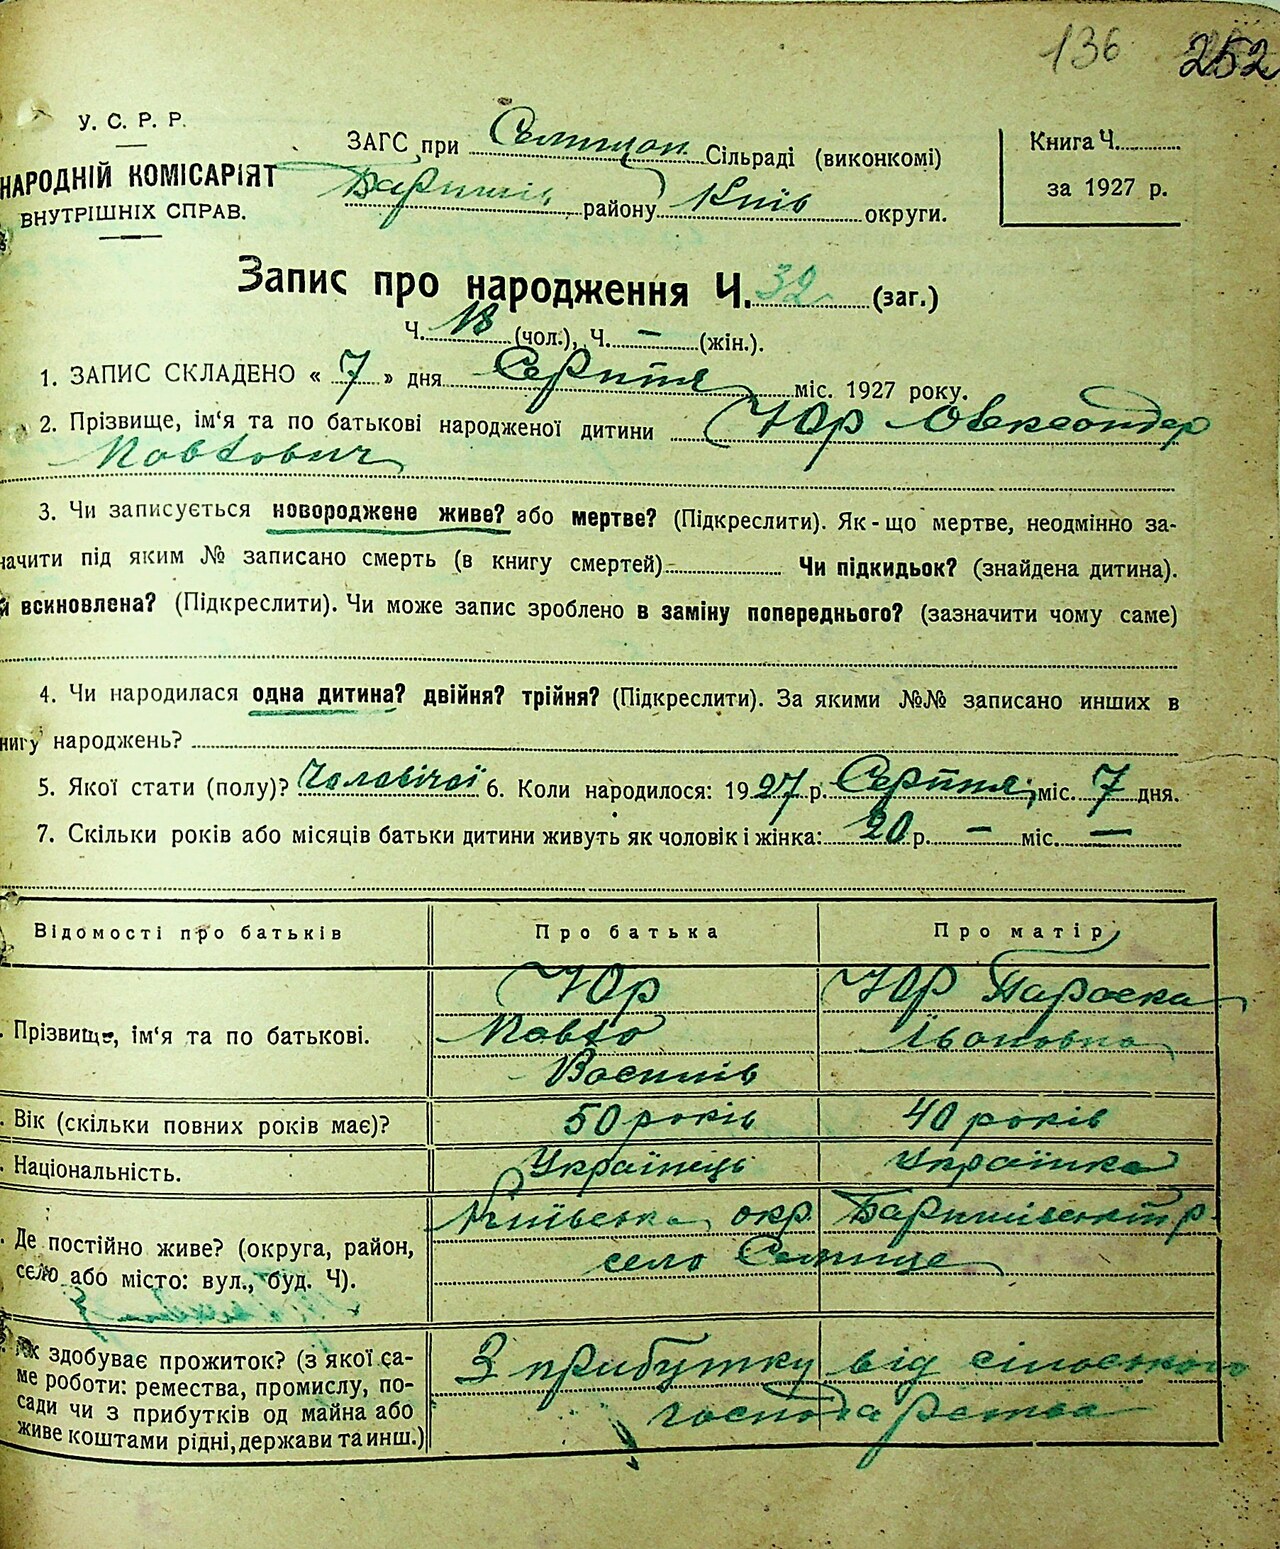 136 252
У. С. Р. Р.
НАРОДНІЙ КОМІСАРІЯТ
ВНУТРІШНІХ СПРАВ.
ЗАГС при Селищан. Сільраді (виконкомі)
Баришів району Київ округи.
Книга Ч.
за 1927 р.
Запис про народження Ч. 32 (заг.)
Ч. 18 (чол.), Ч. — (жін.).
1. ЗАПИС СКЛАДЕНО « 7 » дня Серпня міс. 1927 року.
2. Прізвище, ім'я та по батькові народженої дитини Юр Олександер
Павлович
3. Чи записується новороджене живе? або мертве? (Підкреслити). Як-що мертве, неодмінно за-
начити під яким № записано смерть (в книгу смертей) Чи підкидьок? (знайдена дитина).
й всиновлена? (Підкреслити). Чи може запис зроблено в заміну попереднього? (зазначити чому саме)
4. Чи народилася одна дитина? двійня? трійня? (Підкреслити). За якими №№ записано инших в
нигу народжень?
5. Якої стати (полу)? Чоловічої 6. Коли народилося: 1927 р. Серпня міс. 7 дня.
7. Скільки років або місяців батьки дитини живуть як чоловік і жінка: 20 р. — міс. —
Відомості про батьків Про батька Про матір
. Прізвище, ім'я та по батькові. Юр Павло Василів Юр Параска Івановна
. Вік (скільки повних років має)? 50 років 40 років
. Національність. Українець Українка
. Де постійно живе? (округа, район, Київська окр. Баришівський р.
село або місто: вул., буд. Ч). село Селище
Як здобуває прожиток? (з якої са- З прибутку від сільського
ме роботи: ремества, промислу, по- господарства
сади чи з прибутків од майна або
живе коштами рідні, держави та инш.)